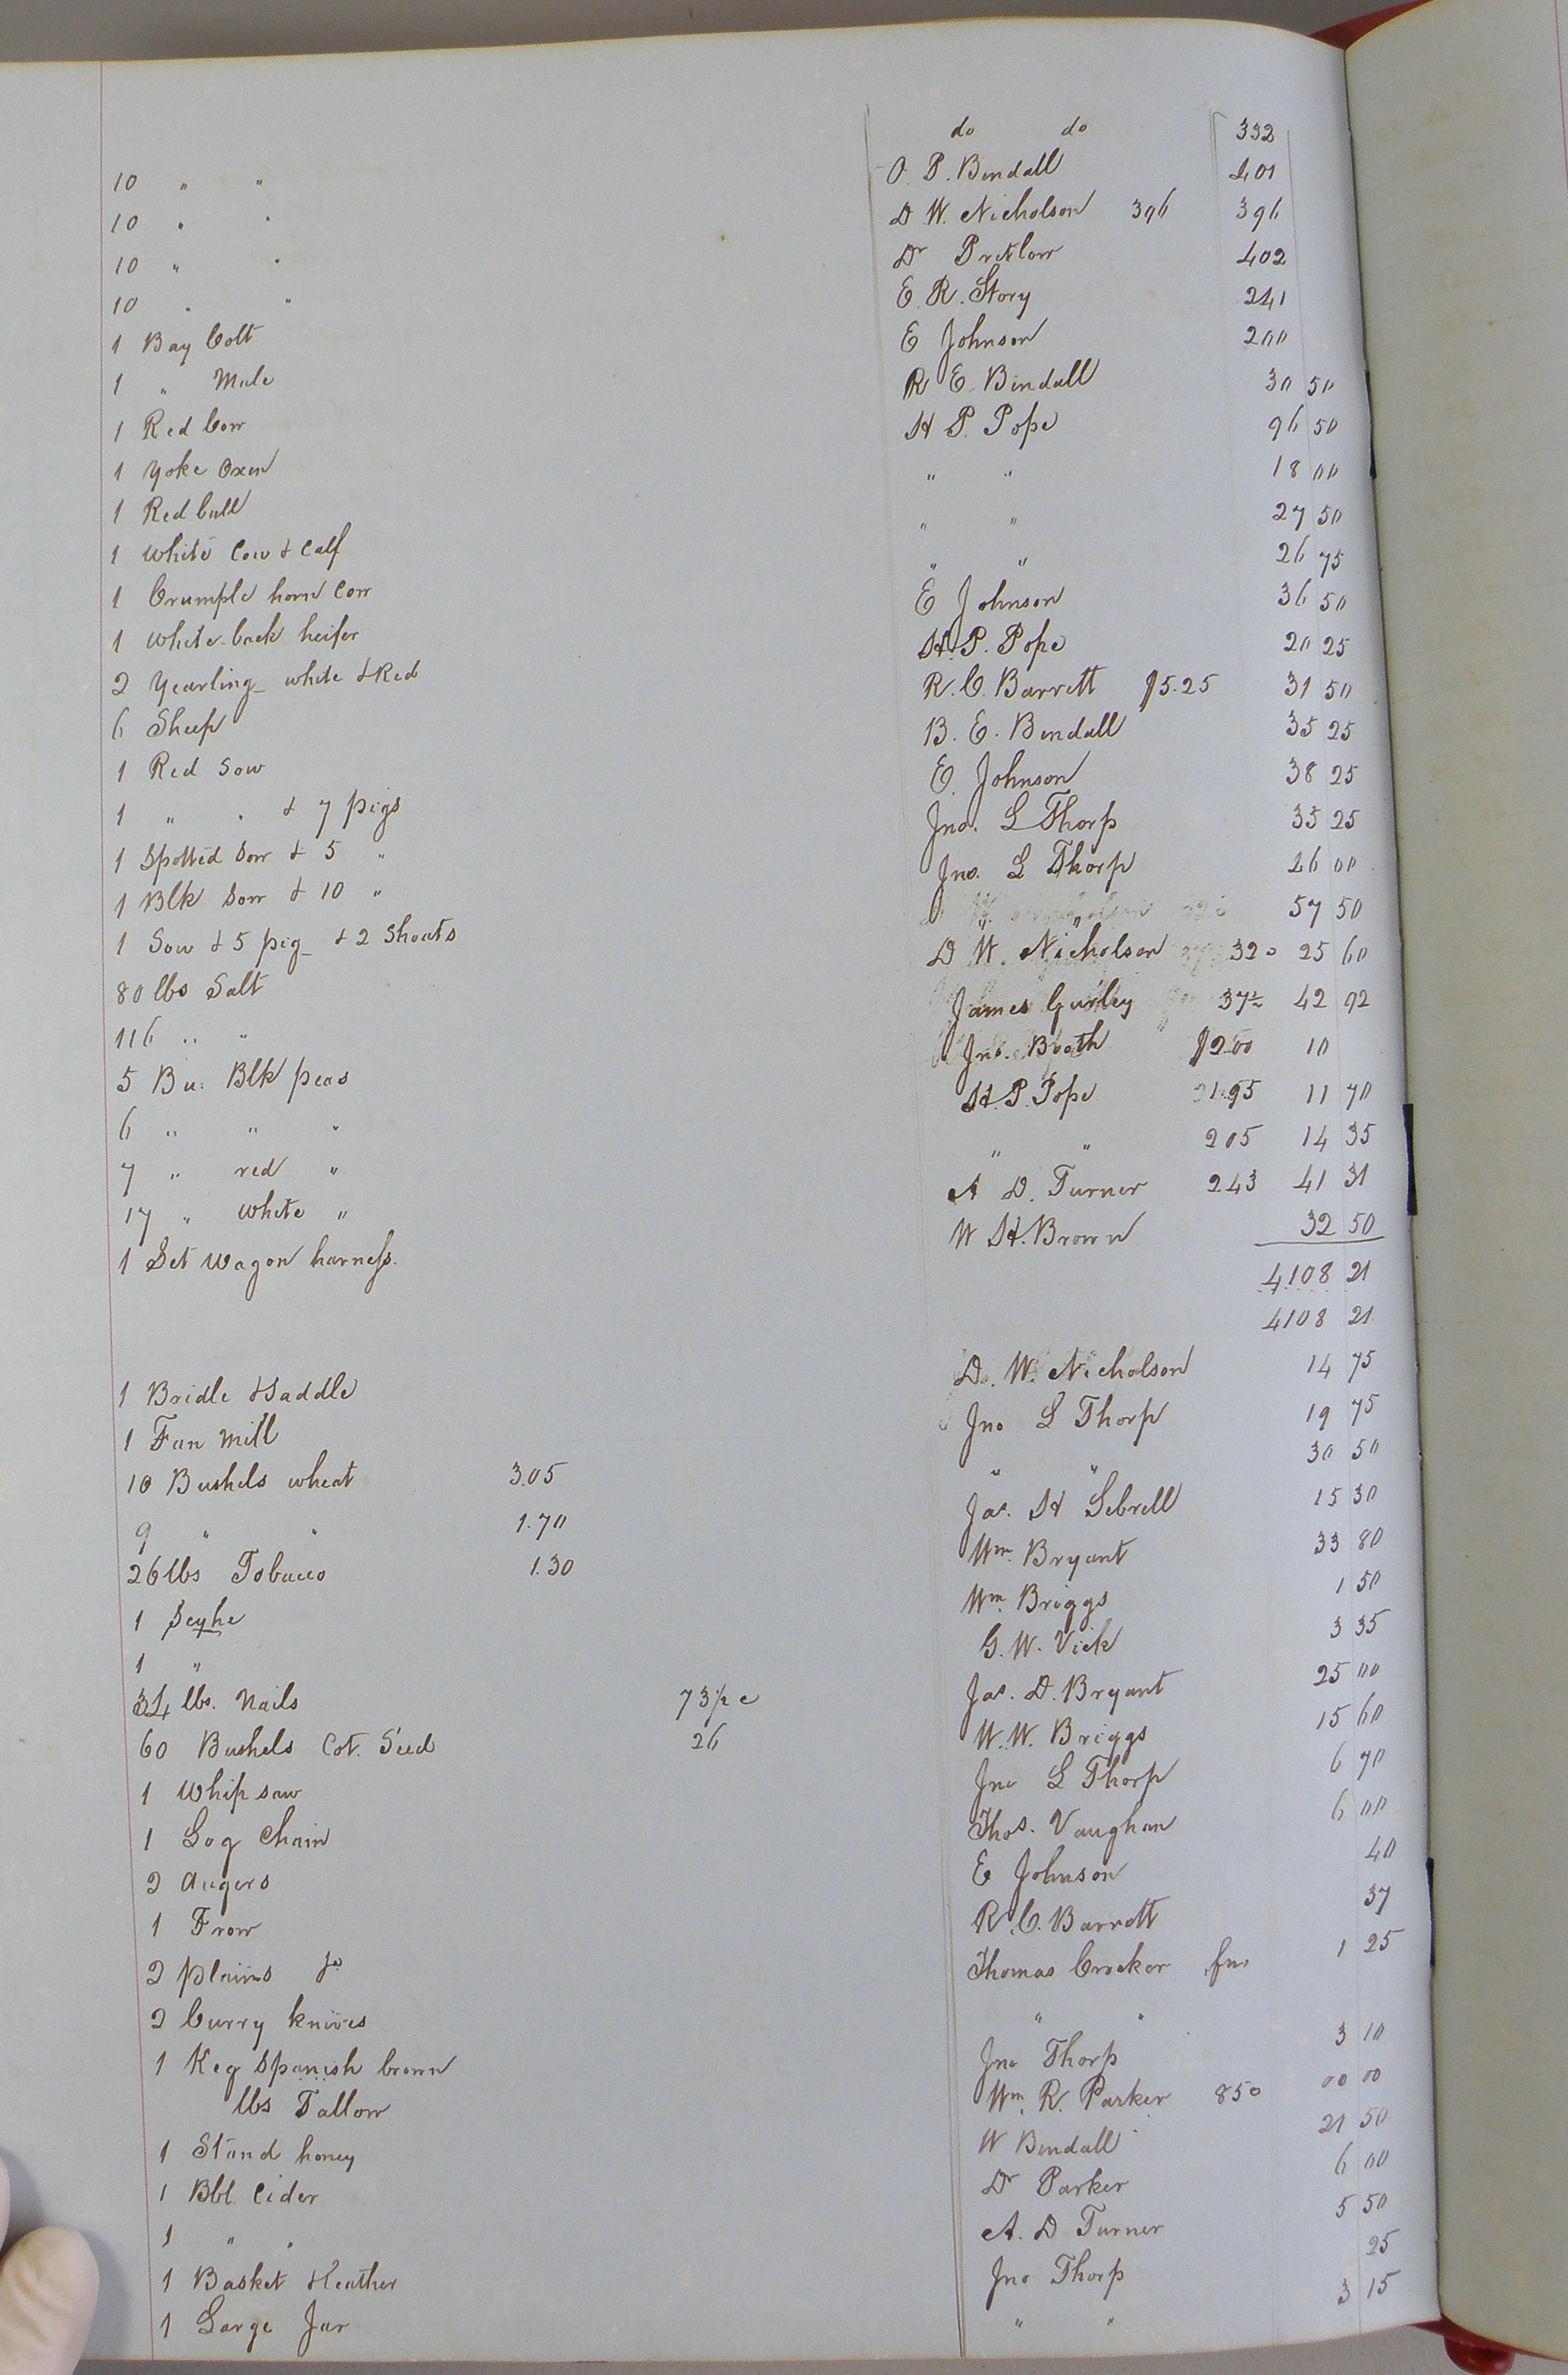 10 " " do do 332
10 " " O. P. Bendall 401
10 " " D. W. Nicholson 396 396
10 " " Dr Pretlow 402
1 Bay Colt E. R. Story 241
1 " Mule E Johnson 200
1 Red Cow R E. Bendall 30 50
1 Yoke Oxen H P. Pope 96 50
1 Red bull " " 18 00
1 white Cow & Calf " " 27 50
1 Crumple horn Cow " " 26 75
1 white back heifer E Johnson 36 50
2 Yearling white & Red H. P. Pope 20 25
6 Sheep R. C. Barrett $5.25 31 50
1 Red Sow B. E. Bendall 35 25
1 " " & 7 pigs E. Johnson 38 25
1 Spotted Sow & 5 " Jno. L Thorp 35 25
1 Blk Sow & 10 " Jno. L Thorp 26 00
1 Sow & 5 pig & 2 Shoats " " 57 50
80 lbs Salt D W. Nicholson 32 25 60
116 " " James Gurley 37 42 92
5 Bu: Blk peas Jno. Booth $2.00 10
6 " " " H. P. Pope 1.95 11 70
7 " red " " " 205 14 35
17 " white " A D. Turner 243 41 31
1 Set wagon harness. W H. Brown 32 50
4108 21
4108 21
1 Bridle & Saddle D. W. Nicholson 14 75
1 Fan Mill Jno L Thorp 19 75
10 Bushels wheat 3.05 " " 30 50
9 " " 1.70 Jas. H Sebrell 15 30
26 lbs Tobacco 1.30 Wm. Bryant 33 80
1 Scyhe Wm. Briggs 1 50
1 " G. W. Vick 3 35
34 lbs. Nails 73½ c Jas. D. Bryant 25 00
60 Bushels Cot. Seed 26 W. W. Briggs 15 60
1 Whip saw Jno L Thorp 6 70
1 Log Chain Thos. Vaughan 6 00
2 Augers E Johnson 40
1 Frow R. C. Barrett 37
2 plains Thomas Crocker 1 25
2 Curry knives " "
1 Keg Spanish brown Jno Thorp 3 10
lbs Tallow Wm. R. Parker 850 00 00
1 Stand honey W Bendall 21 50
1 Bbl. Cider Dr Parker 6 00
1 " " A. D Turner 5 50
1 Basket & leather Jno Thorp 25
1 Large Jar " " 3 15